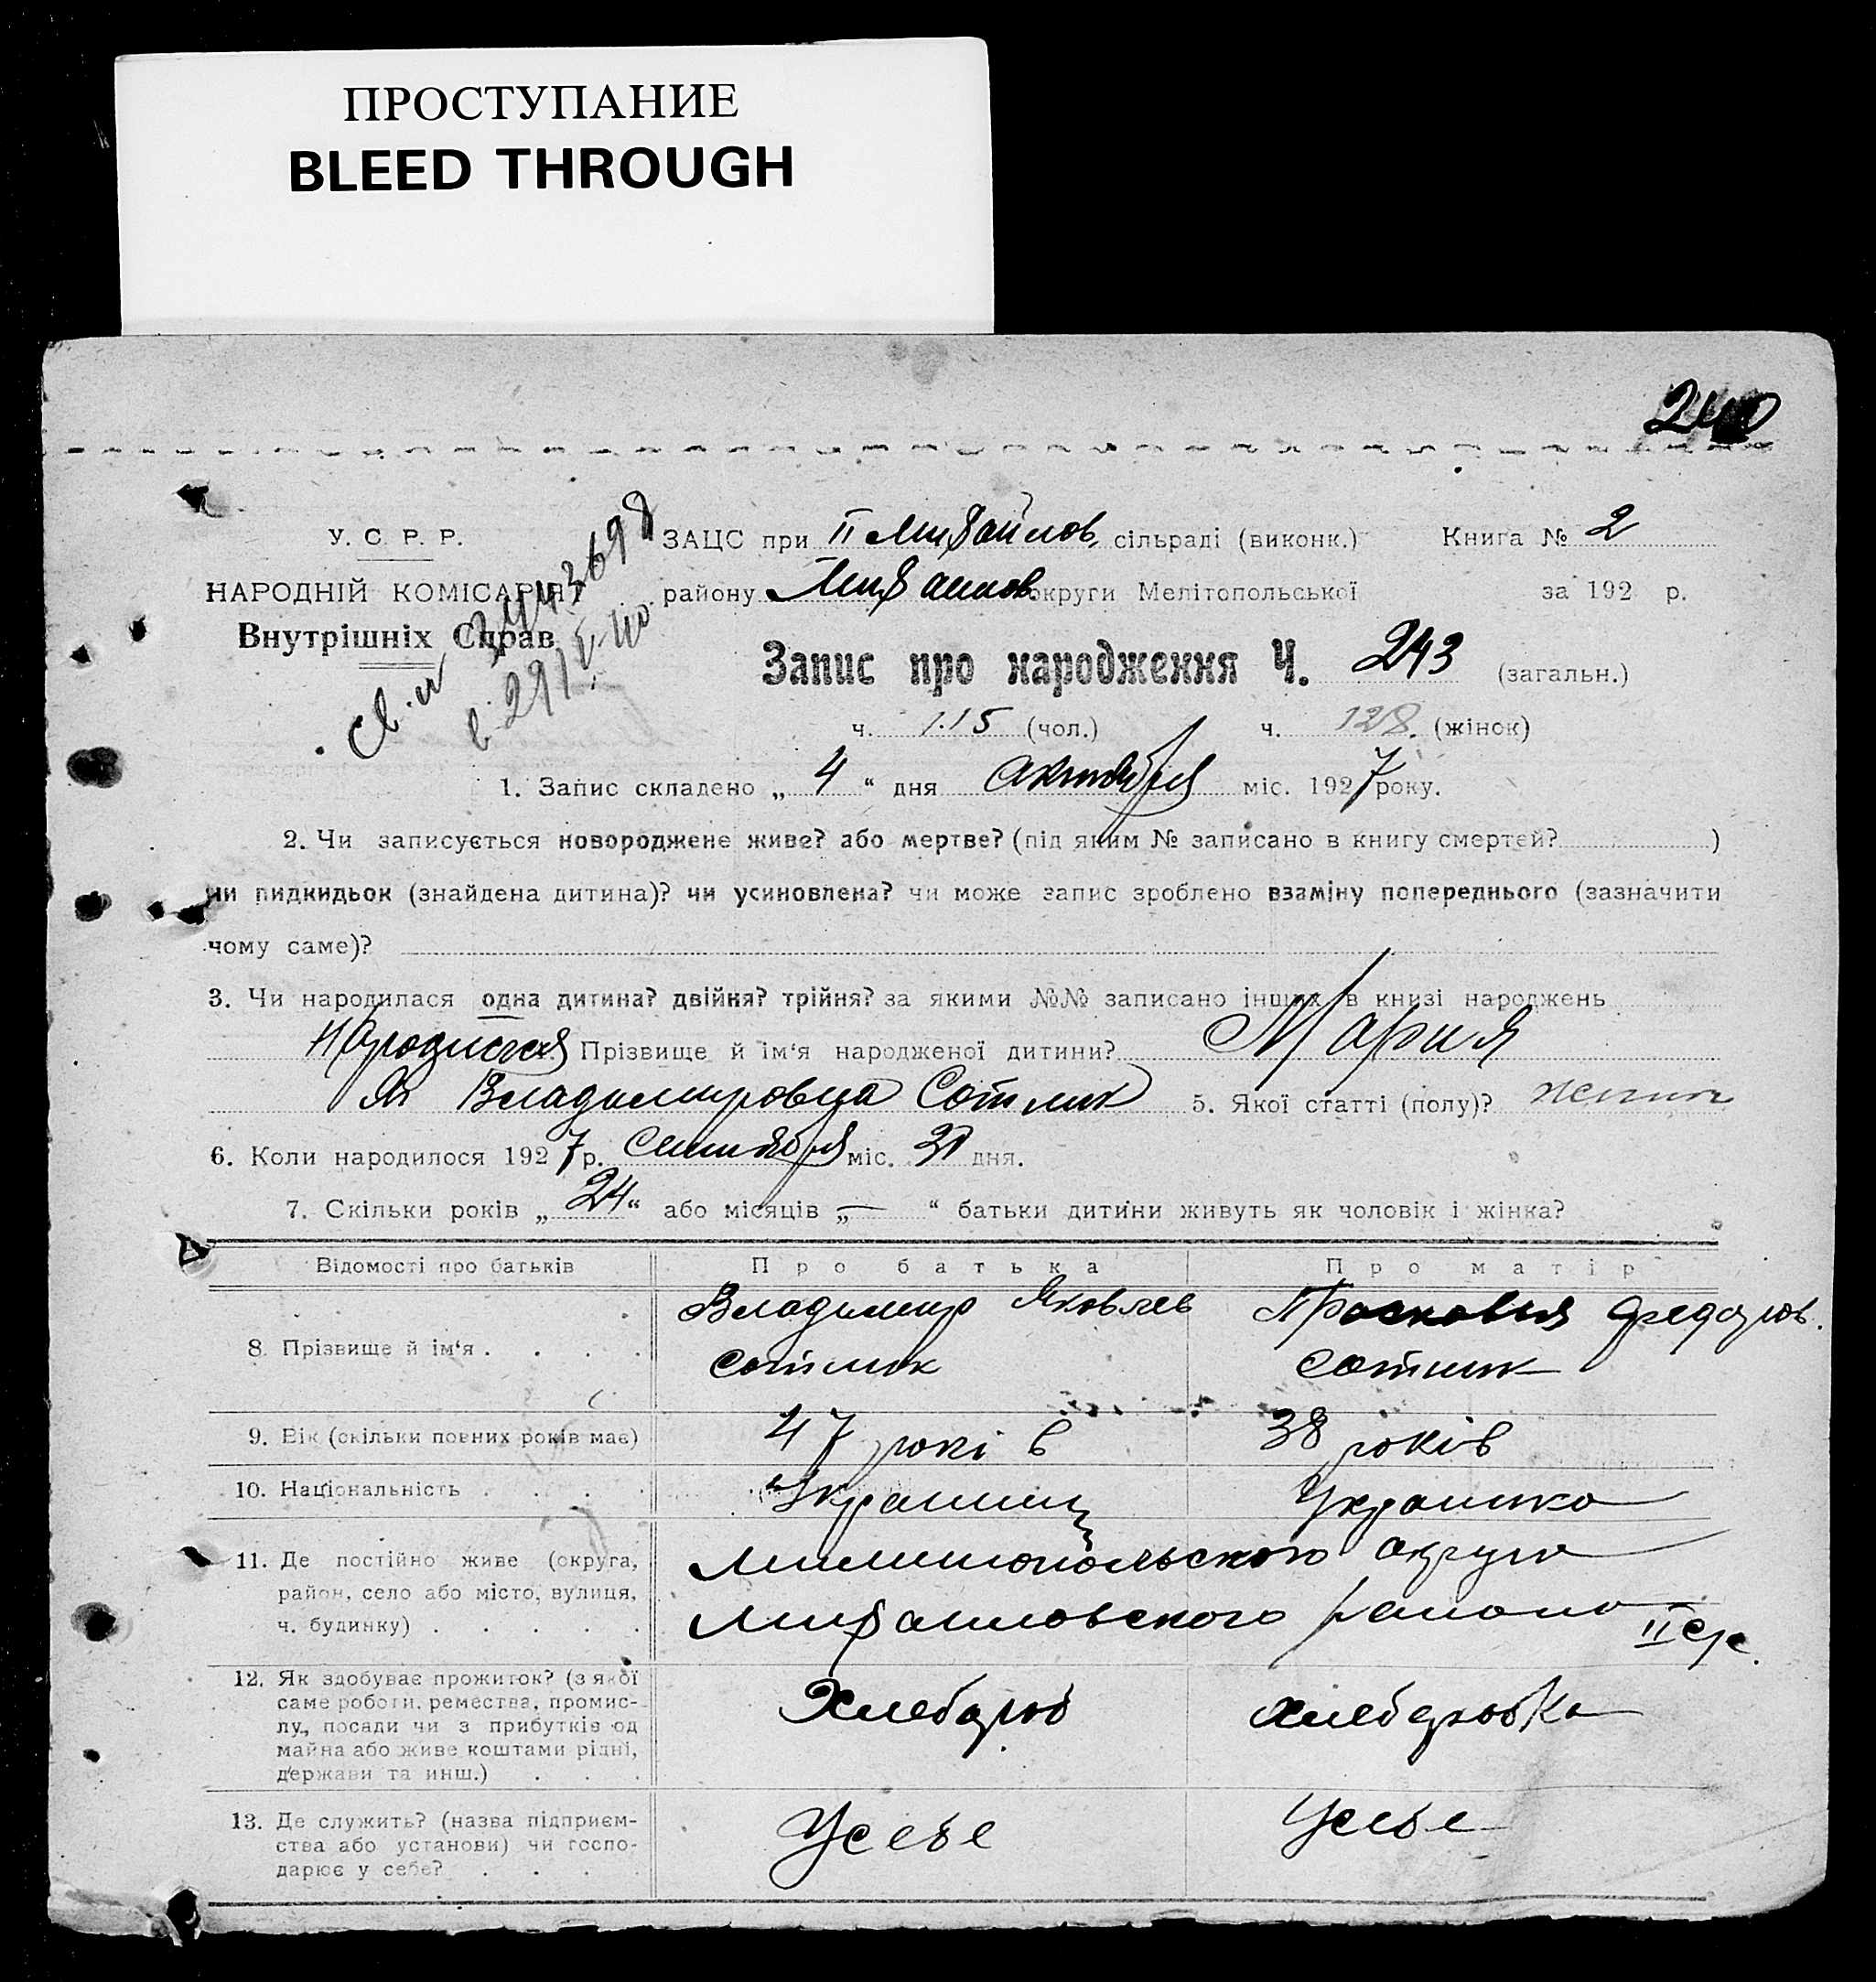 ПРОСТУПАНИЕ
BLEED THROUGH
240
У. С. Р. Р.
НАРОДНІЙ КОМІСАРІЯТ
Внутрішніх Справ
Св. №
ЗАЦС при II Михайлов. сільраді (виконк.) Книга № 2
району Михайлов округи Мелітопольської за 192 р.
Запис про народження Ч. 243 (загальн.)
ч. 115 (чол.) ч. 128. (жінок)
1. Запис складено „ 4 “ дня октября міс. 1927 року.
2. Чи записується новороджене живе? або мертве? (під яким № записано в книгу смертей? )
чи підкидьок (знайдена дитина)? чи усиновлена? чи може запис зроблено взаміну попереднього (зазначити
чому саме)?
3. Чи народилася одна дитина? двійня? трійня? за якими №№ записано інших в книзі народжень
Прізвище й ім‘я народженої дитини? Мария
Владимировна Сотник 5. Якої статті (полу)?
6. Коли народилося 1927 р. сентября міс. дня.
7. Скільки років „ 24 “ або місяців „ — “ батьки дитини живуть як чоловік і жінка?
Відомості про батьків Про батька Про матір
8. Прізвище й ім‘я . . . . Владимир Яковлев Прасковия Федоров.
Сотник Сотник
9. Вік (скільки повних років має) 47 років 38 років
10. Національність . . . . Украинец Украинка
11. Де постійно живе (округа,
район, село або місто, вулиця,
ч. будинку) . . . . .
Мелитопольского округа
Михайловского района
II ср.
12. Як здобуває прожиток? (з якої
саме роботи, ремества, промис-
лу, посади чи з прибутків од
майна або живе коштами рідні,
держави та инш.) . . .
Хлебороб хлеборобка
13. Де служить? (назва підприєм-
ства або установи) чи госпо-
дарює у себе? . . . .
У себе У себе